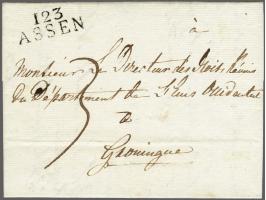 123
ASSEN
à
Monsieur Le Directeur des Droits Réunis
Du Département de L'Ems Occidental
3
à
Groningue